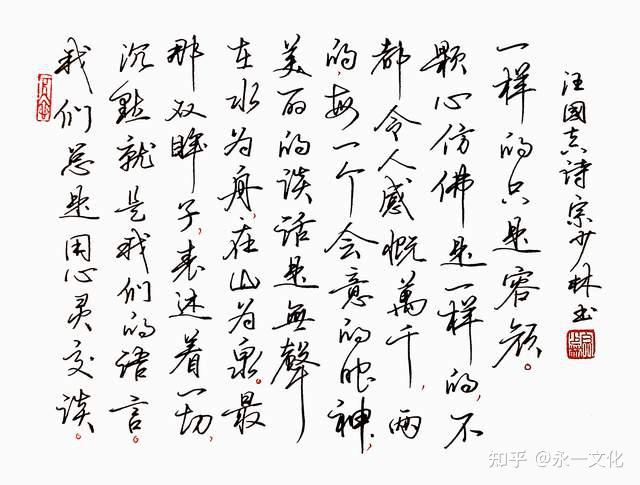 我们总是用心灵交谈。
沉默就是我们的语言。
那双眸子,表述着一切,
在水为舟,在山为泉。最
美丽的谈话是無聲
的,每一个会意的眼神,
都令人感慨萬千,两
颗心仿佛是一样的,不
一样的只是容颜。
汪國真诗宗少林书
知乎 @永一文化